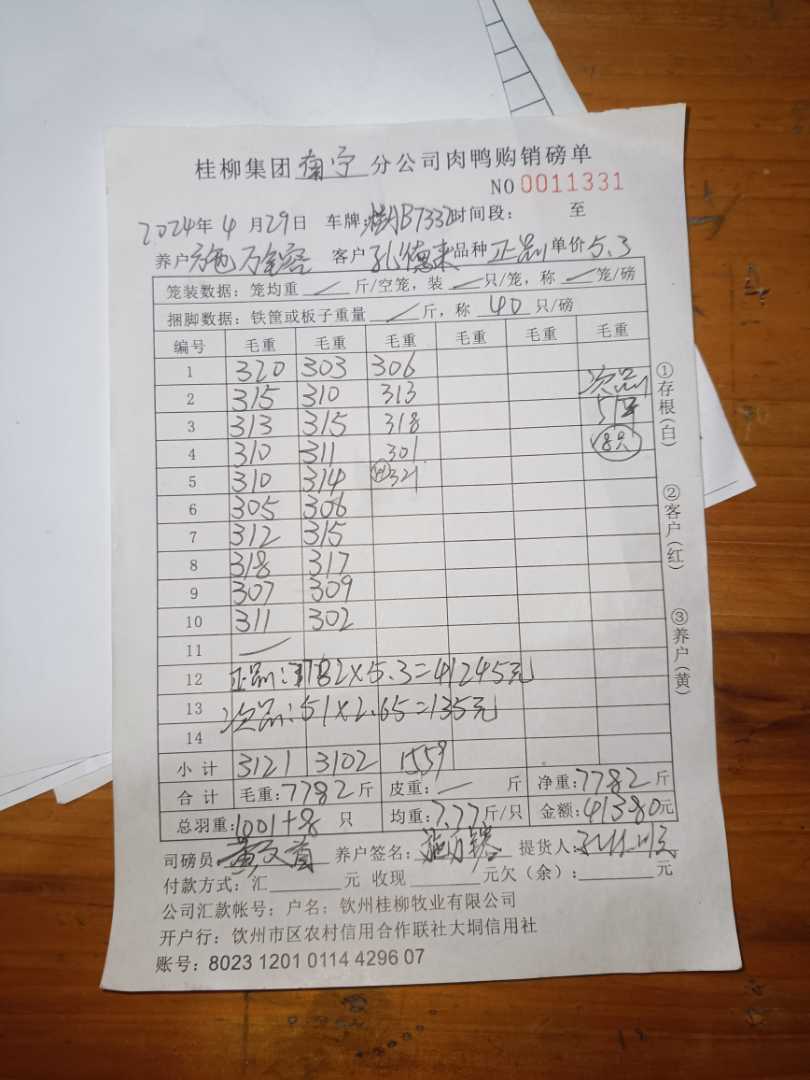 桂柳集团 南宁 分公司肉鸭购销磅单
NO 0011331
2024年 4 月 29 日 车牌: 桂AB7332 时间段: 至
养户 施万容 客户 孔德来 品种 正品 单价 5.3
笼装数据: 笼均重 / 斤/空笼, 装 / 只/笼, 称 / 笼/磅
捆脚数据: 铁筐或板子重量 / 斤, 称 40 只/磅
编号 毛重 毛重 毛重 毛重 毛重 毛重
1 320 303 306
2 315 310 313 次品
3 313 315 318 51
4 310 311 301 8只
5 310 314 321
6 305 306
7 312 315
8 318 317
9 307 309
10 311 302
11 /
12 正品: 7782×5.3=41245元
13 次品: 51×2.65=135元
14
小计 3121 3102 1559
合计 毛重: 7782 斤 皮重: / 斤 净重: 7782 斤
总羽重: 1001+8 只 均重: 7.77 斤/只 金额: 41380 元
司磅员 黄文 养户签名: 提货人:
付款方式: 汇 元 收现 元欠(余): 元
公司汇款帐号: 户名: 钦州桂柳牧业有限公司
开户行: 钦州市区农村信用合作联社大垌信用社
账号: 8023 1201 0114 4296 07
①存根(白)
②客户(红)
③养户(黄)